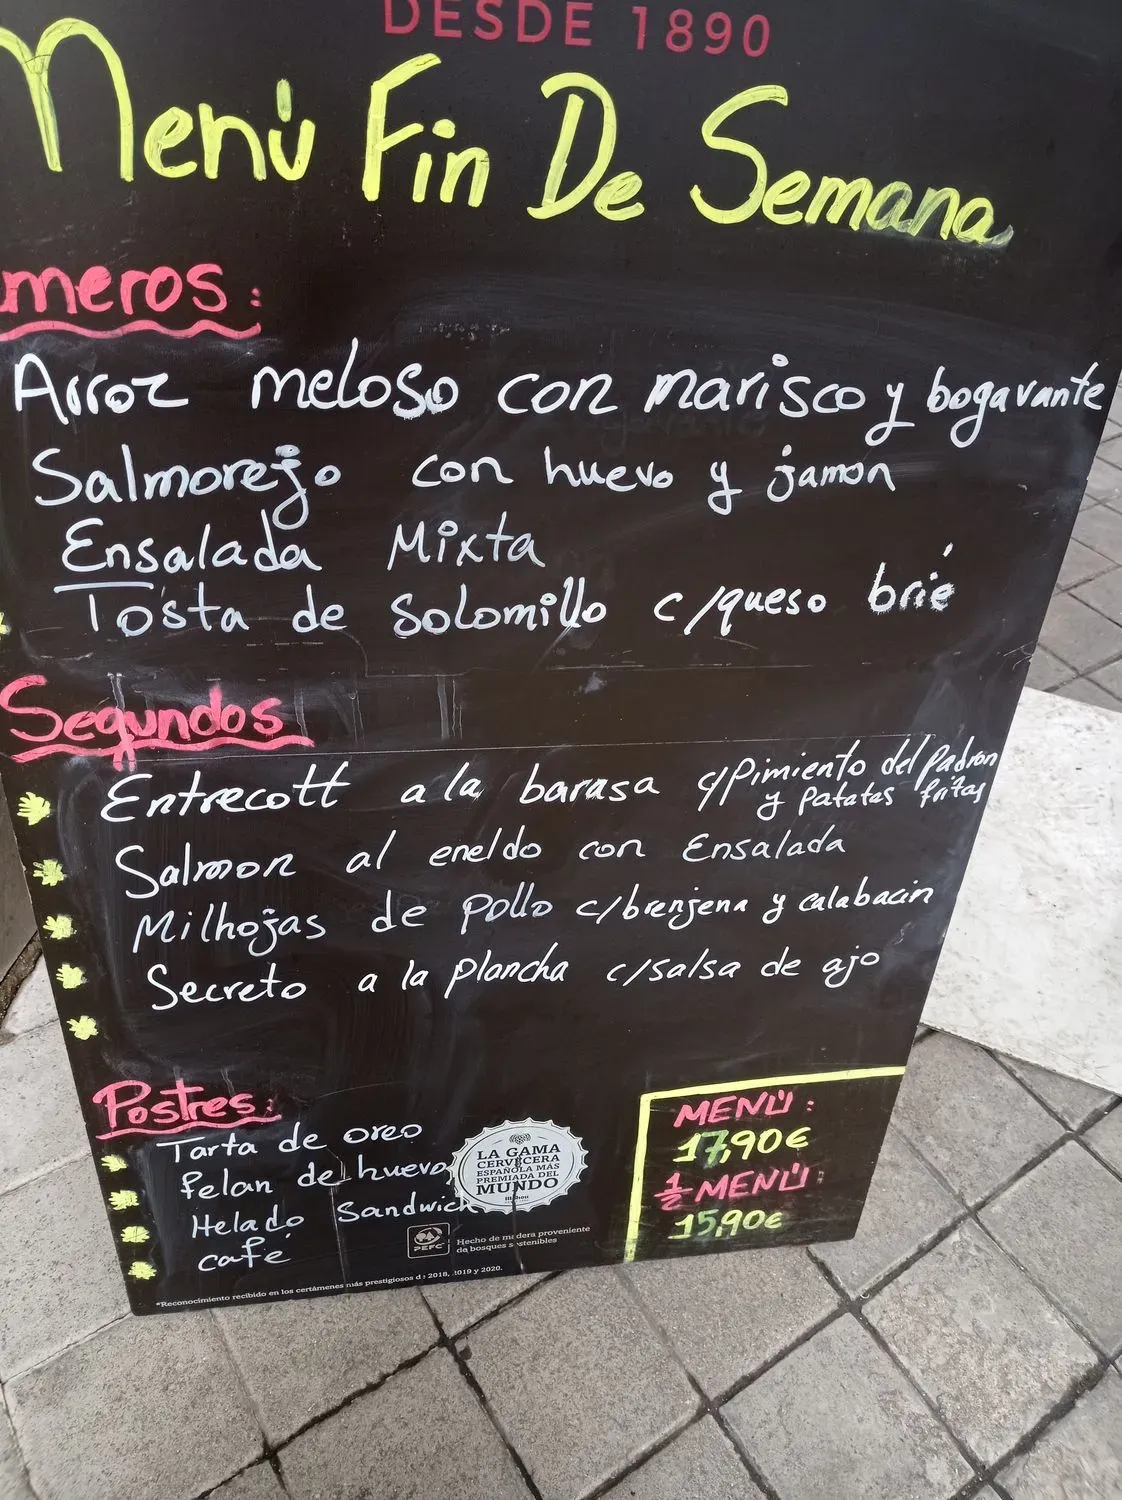 DESDE 1890
Menú Fin De Semana
meros:
Arroz meloso con marisco y bogavante
Salmorejo con huevo y jamon
Ensalada Mixta
Tosta de solomillo c/queso brie
Segundos
Entrecott a la barasa c/Pimiento del Padron
y patatas fritas
Salmon al eneldo con Ensalada
Milhojas de pollo c/brenjena y calabacin
Secreto a la plancha c/salsa de ajo
Postres:
Tarta de oreo
Felan de huevo
Helado Sandwich
café
LA GAMA
CERVECERA
ESPAÑOLA MÁS
PREMIADA DEL
MUNDO
Mahou
PEFC
Hecho de madera proveniente
de bosques sostenibles
*Reconocimiento recibido en los certámenes más prestigiosos de 2018, 2019 y 2020.
MENÚ:
17,90€
1/2 MENÚ:
15,90€